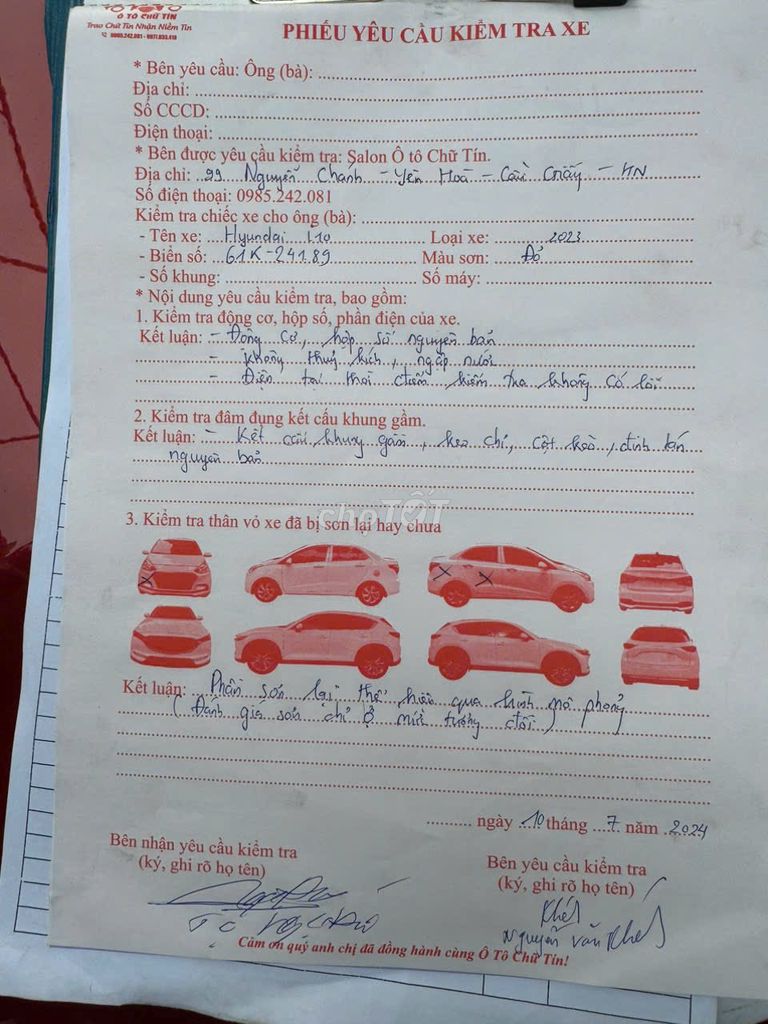 Ô TÔ CHỮ TÍN
Trao Chữ Tín Nhận Niềm Tin
PHIẾU YÊU CẦU KIỂM TRA XE
* Bên yêu cầu: Ông (bà):
Địa chỉ:
Số CCCD:
Điện thoại:
* Bên được yêu cầu kiểm tra: Salon Ô tô Chữ Tín.
Địa chỉ: 99 Nguyễn Chánh - Yên Hoà - Cầu Giấy - HN
Số điện thoại: 0985.242.081
Kiểm tra chiếc xe cho ông (bà):
- Tên xe: Hyundai i10 Loại xe: 2023
- Biển số: 61K-241.89 Màu sơn: Đỏ
- Số khung: Số máy:
* Nội dung yêu cầu kiểm tra, bao gồm:
1. Kiểm tra động cơ, hộp số, phần điện của xe.
Kết luận: - Động cơ, hộp số nguyên bản
- Không thuỷ kích, ngập nước
- Điện tại thời điểm kiểm tra không có lỗi
2. Kiểm tra đâm đụng kết cấu khung gầm.
Kết luận: - Kết cấu khung gầm, keo chỉ, cột kèo, đinh tán
nguyên bản
chợTỐT
3. Kiểm tra thân vỏ xe đã bị sơn lại hay chưa
Kết luận: Phần sơn lại thể hiện qua hình mô phỏng
(Đánh giá sơn chỉ ở mức tương đối)
ngày 10 tháng 7 năm 2024
Bên nhận yêu cầu kiểm tra
(ký, ghi rõ họ tên)
Bên yêu cầu kiểm tra
(ký, ghi rõ họ tên)
Nguyễn Văn
Cảm ơn quý anh chị đã đồng hành cùng Ô Tô Chữ Tín!